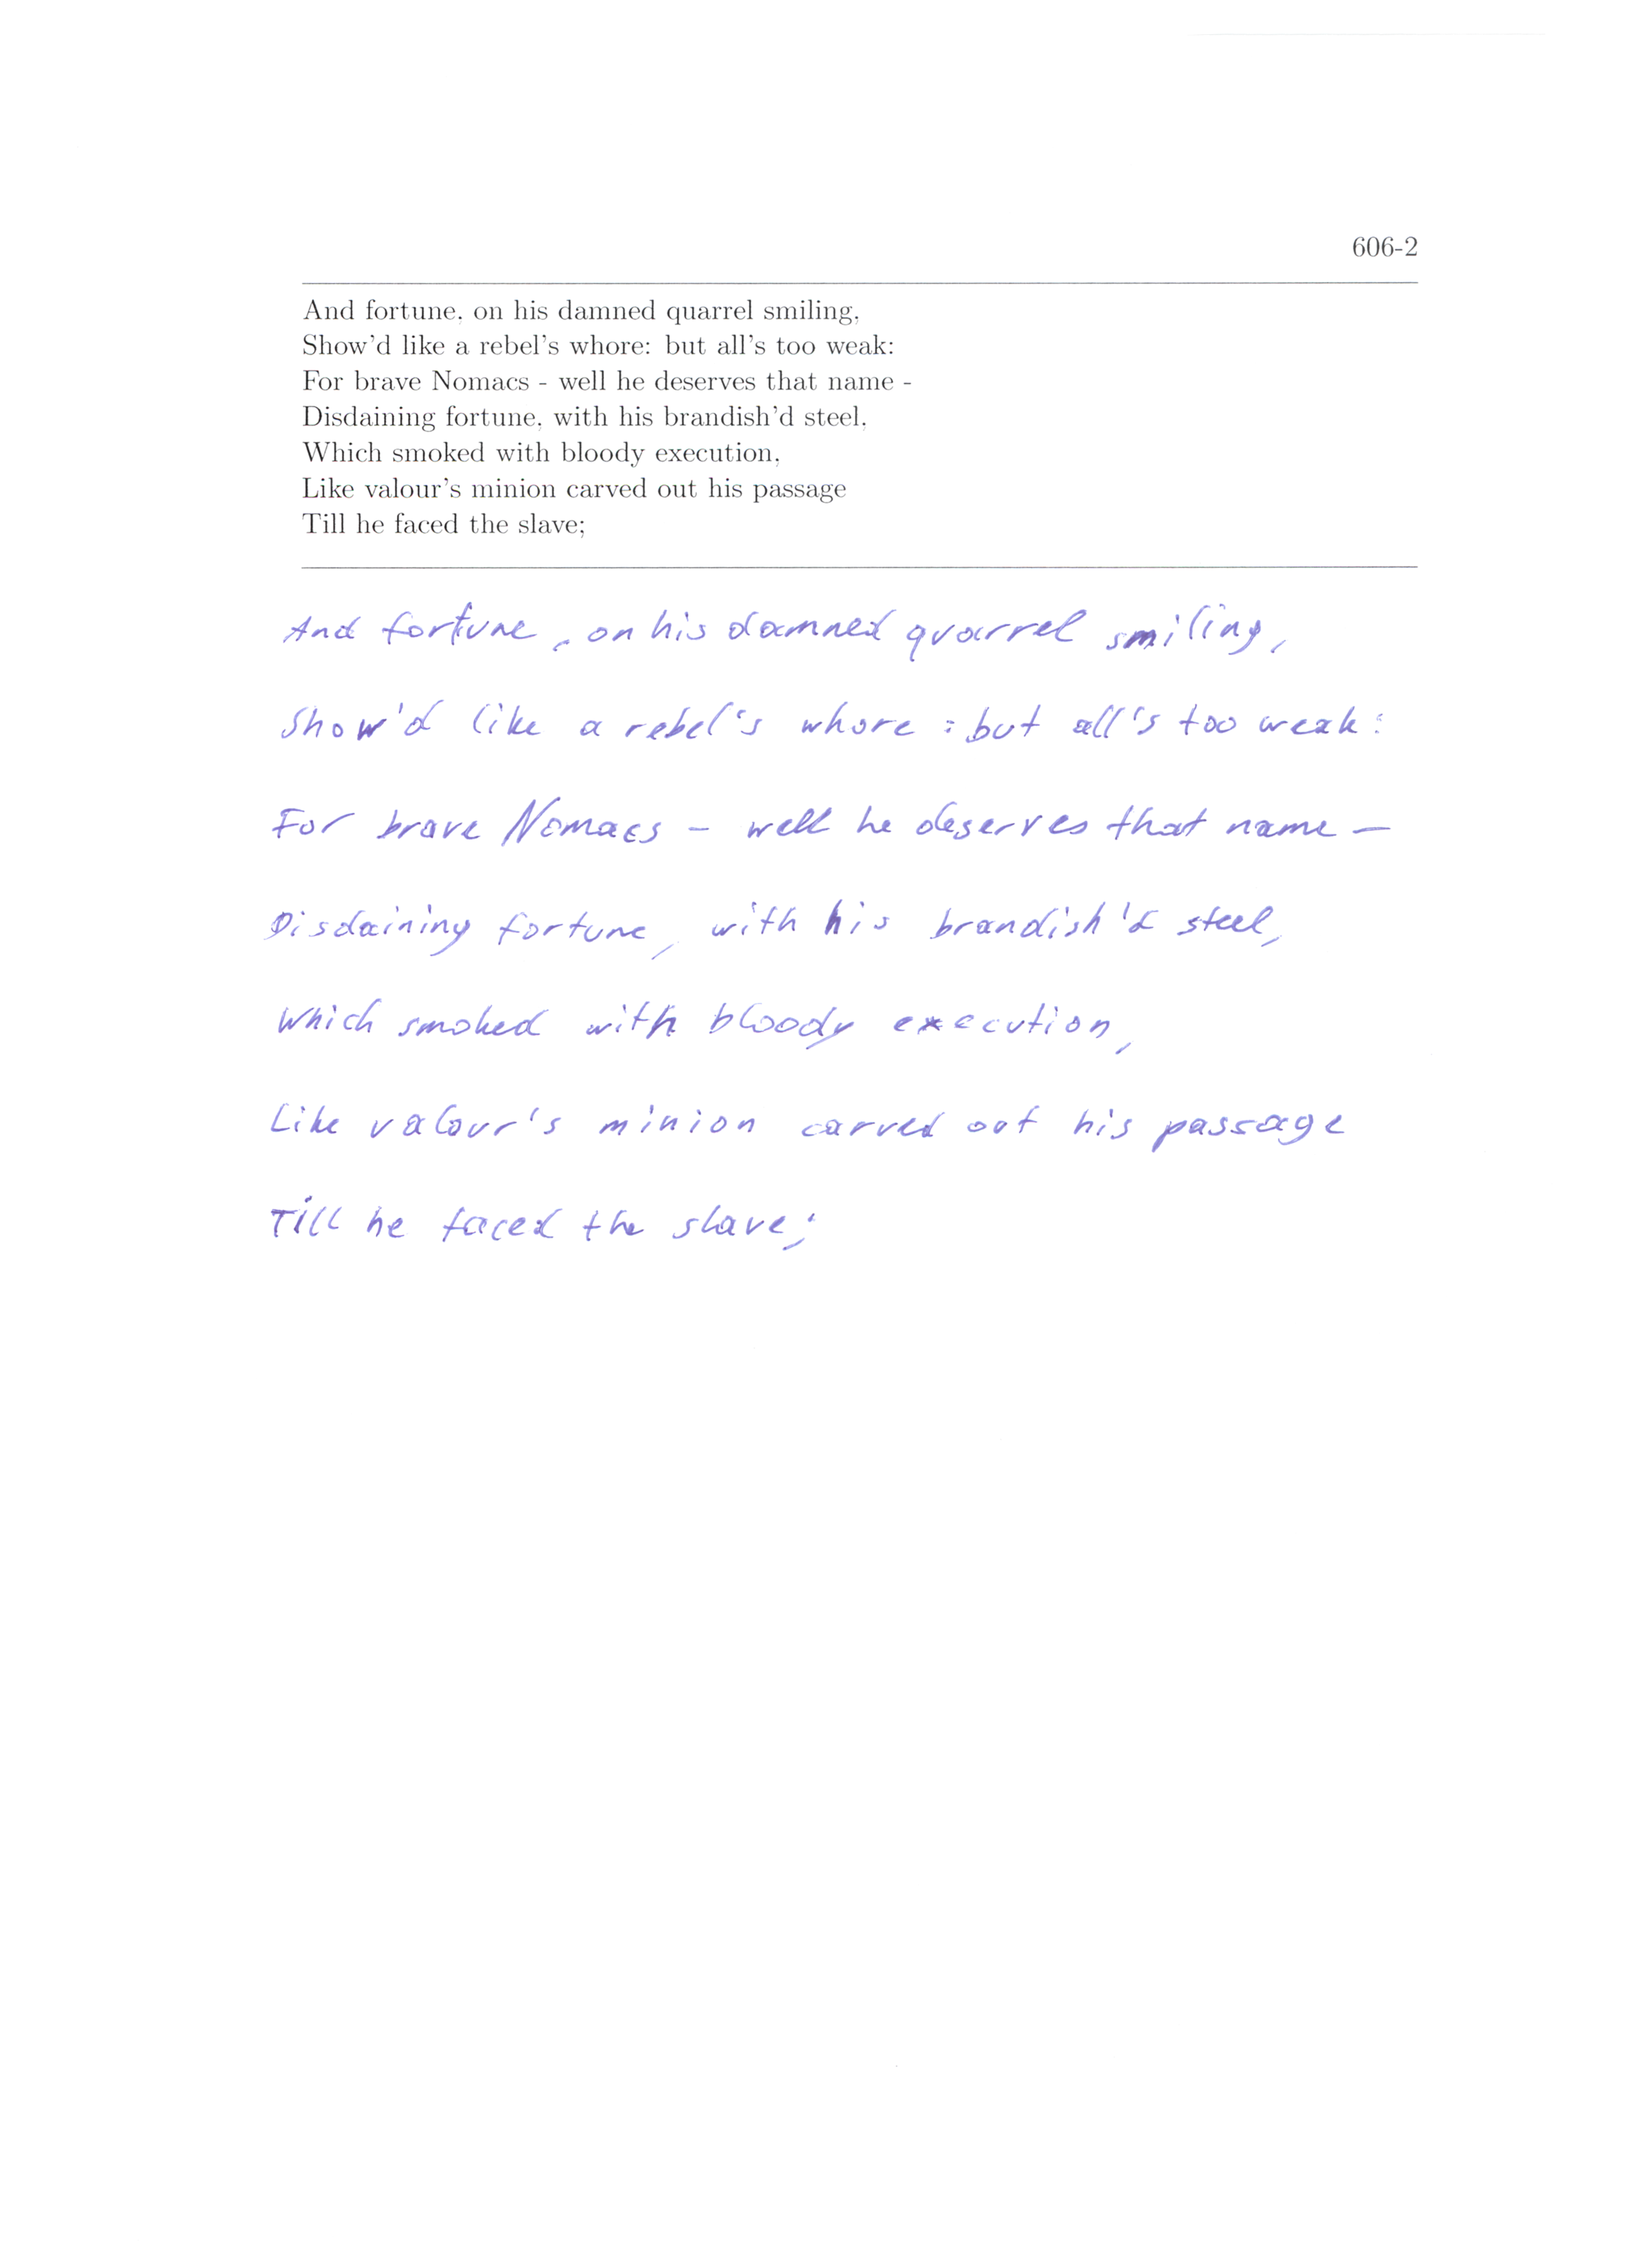 606-2
And fortune, on his damned quarrel smiling,
Show'd like a rebel's whore: but all's too weak:
For brave Nomacs - well he deserves that name -
Disdaining fortune, with his brandish'd steel,
Which smoked with bloody execution,
Like valour's minion carved out his passage
Till he faced the slave;
And fortune, on his damned quarrel smiling,
Show'd like a rebel's whore : but all's too weak:
For brave Nomacs - well he deserves that name -
Disdaining fortune, with his brandish'd steel,
Which smoked with bloody execution,
Like valour's minion carved out his passage
Till he faced the slave;